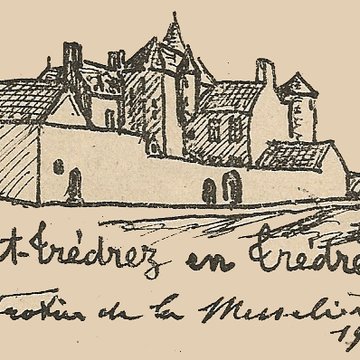 t-Trédrez en Trédre
Frotier de la Messeliè
19